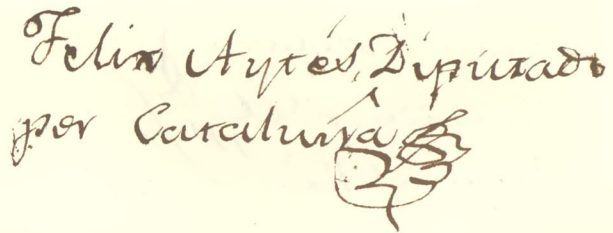 Felix Aytés, Diputado
per Cataluña